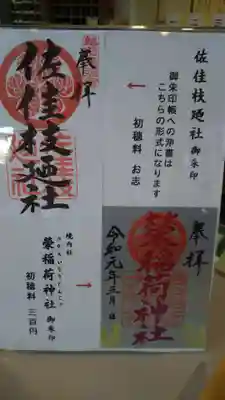 佐佳枝廼社 御朱印
御朱印帳への浄書は
こちらの形式になります
初穂料 お志
←
奉拝
佐佳枝廼社
奉拝
榮稲荷神社
令和元年三月 日
境内社
榮稲荷神社 御朱印
→
初穂料 三百円